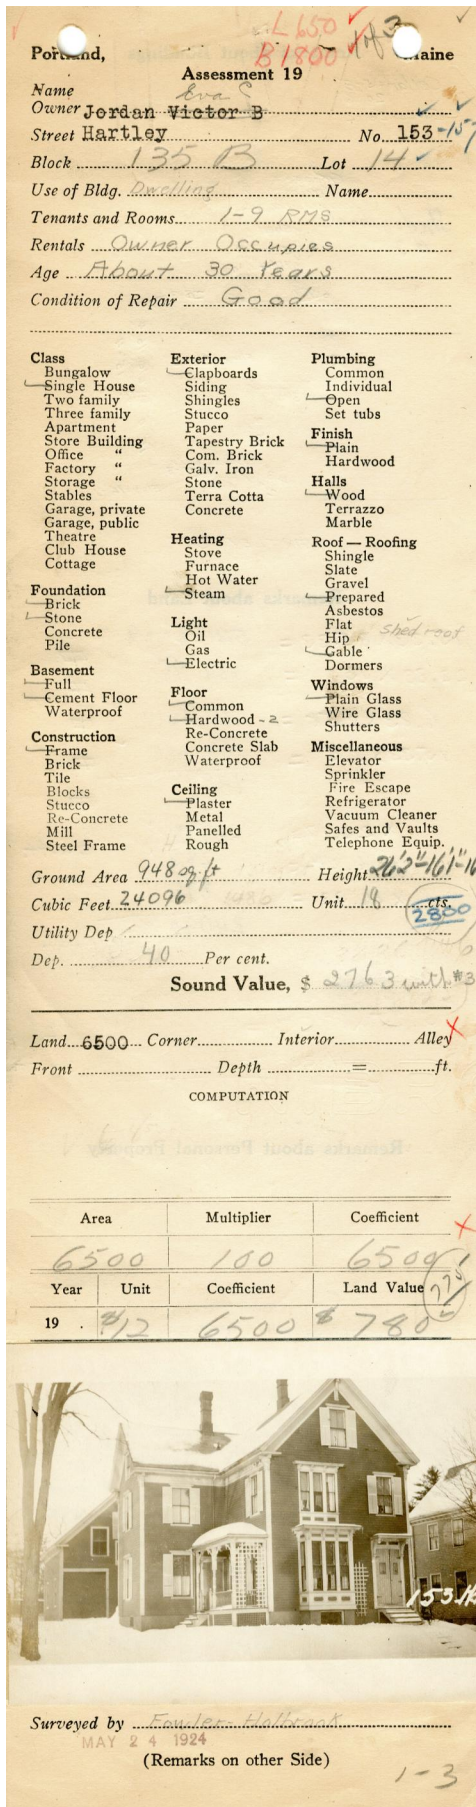 L 650
B 1800 1 of 3
Portland, Maine
Assessment 19
Name Eva S
Owner Jordan Victor B
Street Hartley No. 153-157
Block 135 B Lot 14
Use of Bldg. Dwelling Name
Tenants and Rooms 1-9 RMS
Rentals Owner Occupies
Age About 30 Years
Condition of Repair Good
Class
Bungalow
Single House
Two family
Three family
Apartment
Store Building
Office "
Factory "
Storage "
Stables
Garage, private
Garage, public
Theatre
Club House
Cottage
Foundation
Brick
Stone
Concrete
Pile
Basement
Full
Cement Floor
Waterproof
Construction
Frame
Brick
Tile
Blocks
Stucco
Re-Concrete
Mill
Steel Frame
Exterior
Clapboards
Siding
Shingles
Stucco
Paper
Tapestry Brick
Com. Brick
Galv. Iron
Stone
Terra Cotta
Concrete
Heating
Stove
Furnace
Hot Water
Steam
Light
Oil
Gas
Electric
Floor
Common
Hardwood - 2
Re-Concrete
Concrete Slab
Waterproof
Ceiling
Plaster
Metal
Panelled
Rough
Plumbing
Common
Individual
Open
Set tubs
Finish
Plain
Hardwood
Halls
Wood
Terrazzo
Marble
Roof — Roofing
Shingle
Slate
Gravel
Prepared
Asbestos
Flat
Hip shed roof
Gable
Dormers
Windows
Plain Glass
Wire Glass
Shutters
Miscellaneous
Elevator
Sprinkler
Fire Escape
Refrigerator
Vacuum Cleaner
Safes and Vaults
Telephone Equip.
Ground Area 948 sq ft Height
Cubic Feet 24096 Unit 18 cts.
2800
Utility Dep
Dep. 40 Per cent.
Sound Value, $ 2763 with #3
Land 6500 Corner Interior Alley
Front Depth = ft.
COMPUTATION
Area Multiplier Coefficient
6500 100 6500
Year Unit Coefficient Land Value
19 . $12 6500 $ 780
153 H
Surveyed by Fowler-Holbrook
MAY 24 1924
(Remarks on other Side)
1-3